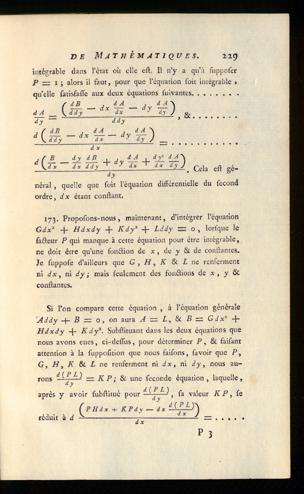 DE MATHÉMATIQUES. 229
intégrable dans l'état où elle est. Il n'y a qu'à supposer
P = 1 ; alors il faut, pour que l'équation soit intégrable,
qu'elle satisfasse aux deux équations suivantes........
dA/dy = (dB/ddy — dx dA/dx — dy dA/dy)/dy, &..........
d (dB/ddy — dx dA/dx — dy dA/dy)/dx = ..........
d (B/dx — dy/dx dB/ddy + dy dA/dx + dy²/dx dA/dy)/dy. Cela est gé-
néral, quelle que soit l'équation différentielle du second
ordre, dx étant constant.
173. Proposons-nous, maintenant, d'intégrer l'équation
Gdx² + Hdxdy + Kdy² + Lddy = 0, lorsque le
facteur P qui manque à cette équation pour être intégrable,
ne doit être qu'une fonction de x, de y & de constantes.
Je suppose d'ailleurs que G, H, K & L ne renferment
ni dx, ni dy; mais seulement des fonctions de x, y &
constantes.
Si l'on compare cette équation, à l'équation générale
Addy + B = 0, on aura A = L, & B = Gdx² +
Hdxdy + Kdy². Substituant dans les deux équations que
nous avons eues, ci-dessus, pour déterminer P, & faisant
attention à la supposition que nous faisons, savoir que P,
G, H, K & L ne renferment ni dx, ni dy, nous au-
rons d(PL)/dy = KP; & une seconde équation, laquelle,
après y avoir substitué pour d(PL)/dy, sa valeur KP, se
réduit à d (PHdx + KPdy — dx d(PL)/dx)/dx = .....
P 3